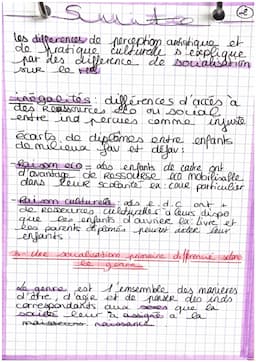 Suite
les différences de perception artistique et
de pratique culturelle s'explique
par des différence de socialisation
sur le
inégalités : différences d'accès à
des ressources éco ou social
entre ind perçues comme injuste
écarts de diplômes entre enfants
de milieux fav et défav :
- Raison eco = des enfants de cadre ont
d'avantage de ressource éco mobilisable
dans leur scolarité ex : cour particulier
- Raison culturelle = des e.d.c ont +
de ressources culturelles a leurs dispo
que les enfants d'ouvrier. Ex : livre et
les parents diplômés peuvent aider leur
enfants
une socialisation primaire différencié selon
le genre
le genre est l'ensemble des manières
d'être, d'agir et de penser des inds
correspondants aux que la
société leur a assigné a la
naissance